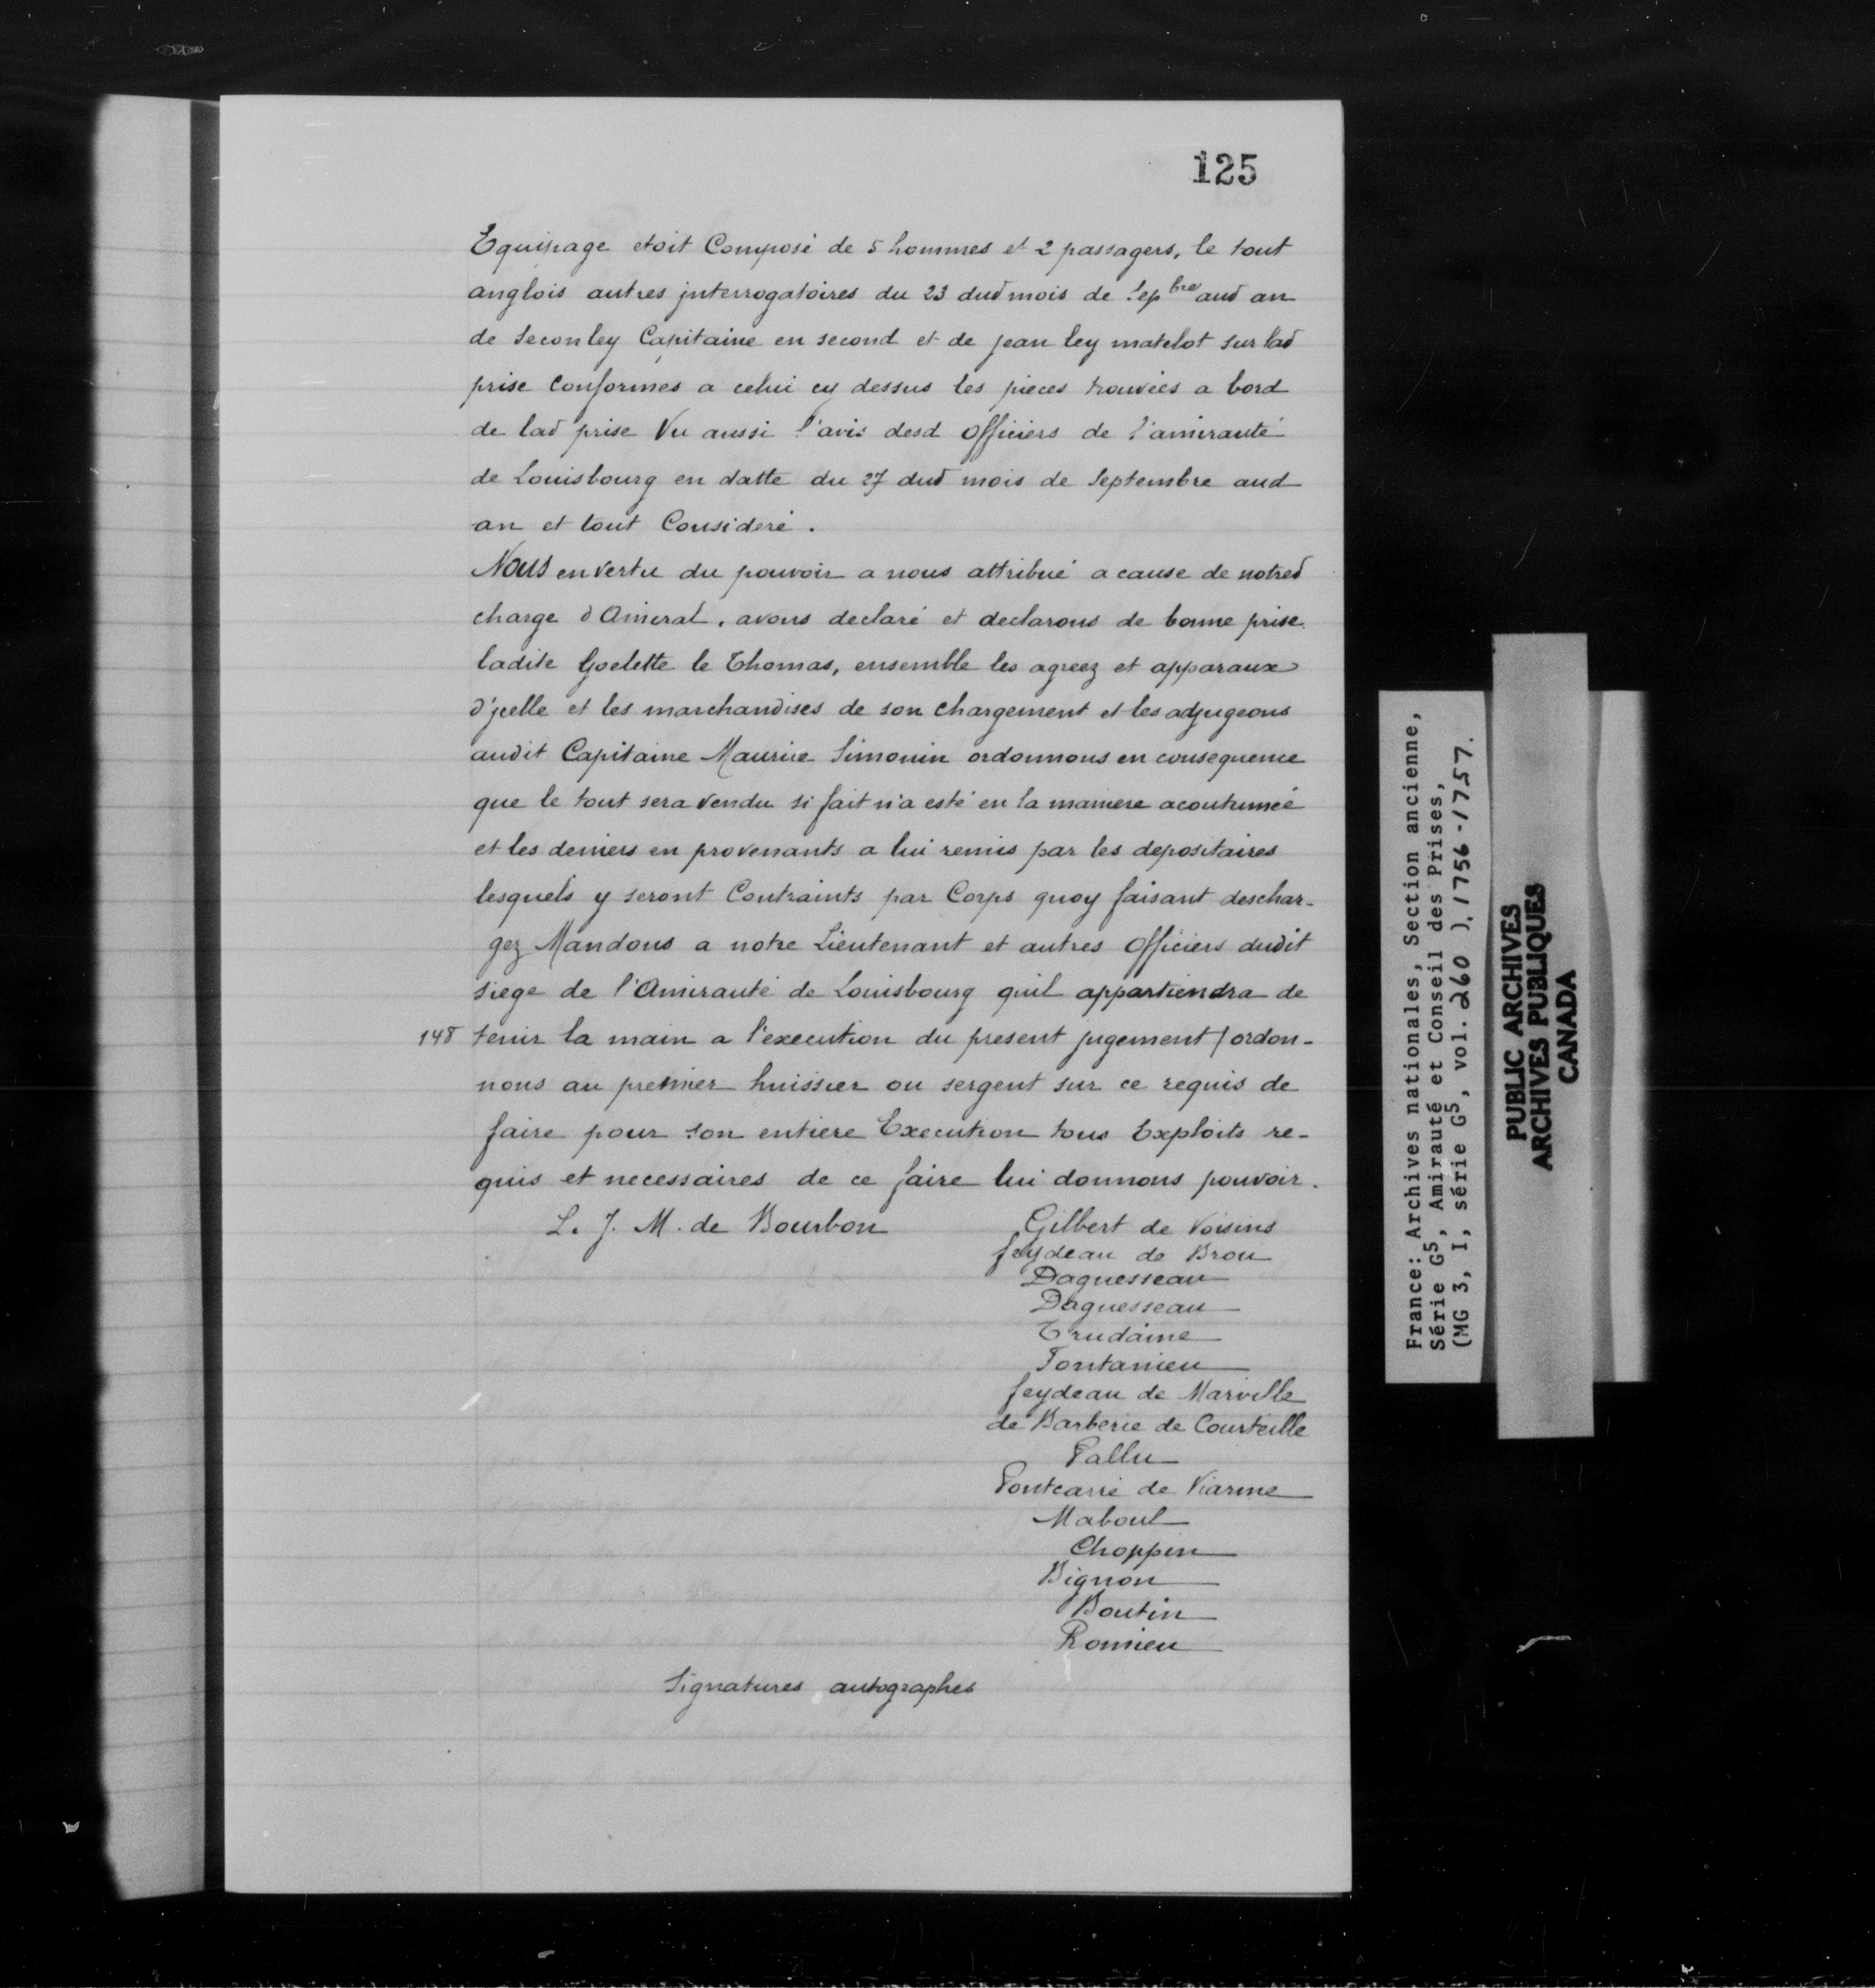 125
Equipage etoit Composé de 5 hommes et 2 passagers, le tout
anglois autres jnterrogatoires du 23 dud mois de Sepbre aud an
de Seconley Capitaine en second et de jean ley matelot sur lad
prise Conformes a celui cy dessus les pieces trouvées a bord
de lad prise Vu aussi l'avis desd Officiers de l'amirauté
de Louisbourg en datte du 27 dud mois de Septembre aud
an et tout Consideré.
Nous en vertu du pouvoir a nous attribué a cause de notred
charge d'Amiral, avons declaré et declarons de bonne prise
ladite Goelette le Thomas, ensemble les agreez et apparaux
d'jcelle et les marchandises de son chargement et les adjugeons
audit Capitaine Maurice Simonin ordonnons en consequence
que le tout sera vendu si fait n'a esté en la maniere acoutumée
et les deniers en provenants a lui remis par les depositaires
lesquels y seront Contraints par Corps quoy faisant deschar-
gez Mandons a notre Lieutenant et autres Officiers dudit
siege de l'Amirauté de Louisbourg quil appartiendra de
148 tenir la main a l'execution du present jugement / ordon-
nons au premier huissier ou sergent sur ce requis de
faire pour son entiere Execution tous Exploits re-
quis et necessaires de ce faire lui donnons pouvoir.
L. J. M. de Bourbon
Gilbert de Voisins
feydeau de Brou
Daguesseau
Daguesseau
Trudaine
Fontanieu
feydeau de Marville
de Barberie de Courteille
Pallu
Pontcarré de Viarme
Maboul
Choppin
Bignon
Boutin
Romieu
Signatures autographes
France: Archives nationales, Section ancienne,
Série G5, Amirauté et Conseil des Prises,
(MG 3, I, série G5, vol. 260 ), 1756-1757.
PUBLIC ARCHIVES
ARCHIVES PUBLIQUES
CANADA